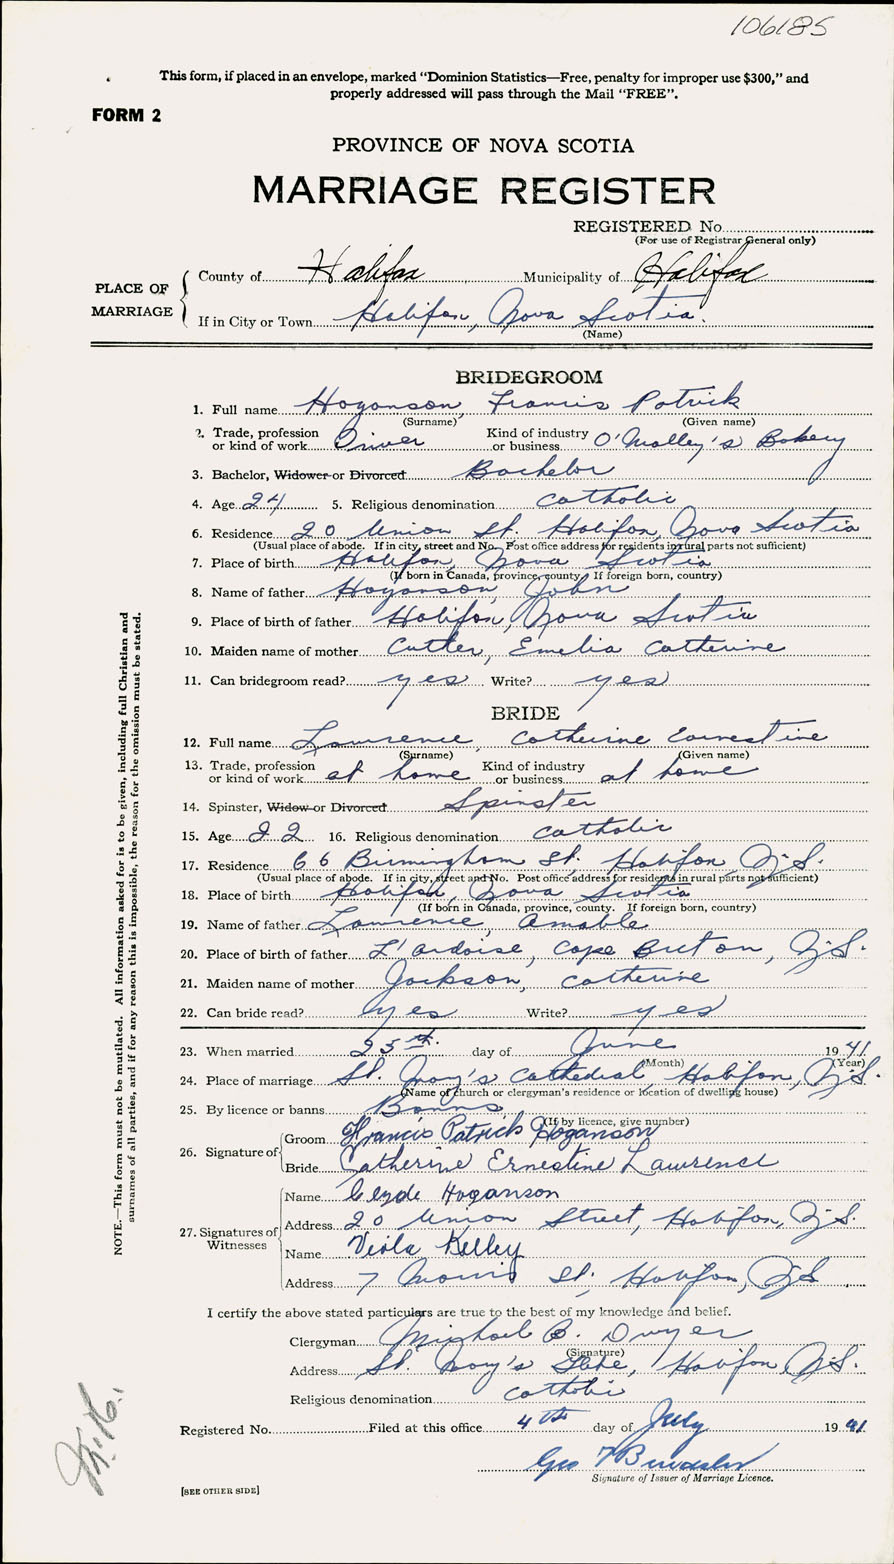 106185
This form, if placed in an envelope, marked "Dominion Statistics—Free, penalty for improper use $300," and
properly addressed will pass through the Mail "FREE".
FORM 2
PROVINCE OF NOVA SCOTIA
MARRIAGE REGISTER
REGISTERED No.
(For use of Registrar General only)
PLACE OF MARRIAGE
County of Halifax Municipality of Halifax
If in City or Town Halifax, Nova Scotia.
(Name)
BRIDEGROOM
1. Full name Hoganson, Francis Patrick
(Surname) (Given name)
2. Trade, profession or kind of work Driver Kind of industry or business O'Malley's Bakery
3. Bachelor, Widower or Divorced Bachelor
4. Age 24 5. Religious denomination Catholic
6. Residence 20 Union St. Halifax, Nova Scotia
(Usual place of abode. If in city, street and No. Post office address for residents in rural parts not sufficient)
7. Place of birth Halifax, Nova Scotia
(If born in Canada, province, county. If foreign born, country)
8. Name of father Hoganson, John
9. Place of birth of father Halifax, Nova Scotia
10. Maiden name of mother Cutler, Emelia Catherine
11. Can bridegroom read? yes Write? yes
BRIDE
12. Full name Lawrence, Catherine Earnestine
(Surname) (Given name)
13. Trade, profession or kind of work at home Kind of industry or business at home
14. Spinster, Widow or Divorced Spinster
15. Age 22 16. Religious denomination Catholic
17. Residence 66 Birmingham St. Halifax, N.S.
(Usual place of abode. If in city, street and No. Post office address for residents in rural parts not sufficient)
18. Place of birth Halifax, Nova Scotia
(If born in Canada, province, county. If foreign born, country)
19. Name of father Lawrence, Amable
20. Place of birth of father L'Ardoise, Cape Breton, N.S.
21. Maiden name of mother Jackson, Catherine
22. Can bride read? yes Write? yes
23. When married 25th. day of June 1941
(Month) (Year)
24. Place of marriage St. Mary's Cathedral, Halifax, N.S.
(Name of church or clergyman's residence or location of dwelling house)
25. By licence or banns Banns
(If by licence, give number)
26. Signature of
Groom Francis Patrick Hoganson
Bride Catherine Ernestine Lawrence
27. Signatures of Witnesses
Name Clyde Hoganson
Address 20 Union Street, Halifax, N.S.
Name Viola Kelley
Address 7 Morris St., Halifax, N.S.
I certify the above stated particulars are true to the best of my knowledge and belief.
Clergyman Michael B. Dwyer
(Signature)
Address St. Mary's Glebe, Halifax, N.S.
Religious denomination Catholic
Registered No. Filed at this office 4th day of July 1941
Geo
Signature of Issuer of Marriage Licence.
[SEE OTHER SIDE]
NOTE.—This form must not be mutilated. All information asked for is to be given, including full Christian and
surnames of all parties, and if for any reason this is impossible, the reason for the omission must be stated.